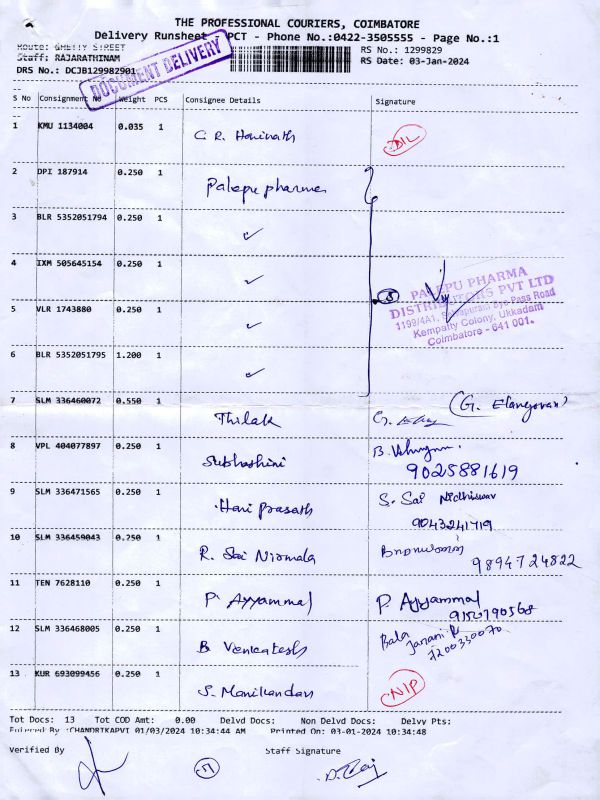 THE PROFESSIONAL COURIERS, COIMBATORE
Delivery Runsheet - PCT - Phone No.:0422-3505555 - Page No.:1
Route: GHETTY STREET RS No.: 1299829
Staff: RAJARATHINAM RS Date: 03-Jan-2024
DRS No.: DCJB129982901
DOCUMENT DELIVERY
S No Consignment No Weight PCS Consignee Details Signature
1 KMU 1134004 0.035 1 C. R. Harinath
2 DPI 187914 0.250 1 Palepu pharma
3 BLR 5352051794 0.250 1 ✓
4 IXM 505645154 0.250 1 ✓
5 VLR 1743880 0.250 1 ✓
6 BLR 5352051795 1.200 1 ✓
PALEPU PHARMA
DISTRIBUTORS PVT LTD
1199/4A1, Bye Pass Road
Kempatty Colony, Ukkadam
Coimbatore - 641 001.
7 SLM 336460072 0.550 1 Thilak (G. Elangovan)
8 VPL 404077897 0.250 1 Subhashini
9025881619
9 SLM 336471565 0.250 1 Hari Prasath S. Sai Nidhiswar
9043241719
10 SLM 336459043 0.250 1 R. Sai Nirmala
9894724822
11 TEN 7628110 0.250 1 P. Ayyammal P. Ayyammal
9150790568
12 SLM 336468005 0.250 1 B Venkatesh Bala
Janani R
7200330070
13 KUR 693099456 0.250 1 S. Manikandan NIP
Tot Docs: 13 Tot COD Amt: 0.00 Delvd Docs: Non Delvd Docs: Delvy Pts:
Entered By :CHANDRIKAPVT 01/03/2024 10:34:44 AM Printed On: 03-01-2024 10:34:48
Verified By Staff Signature